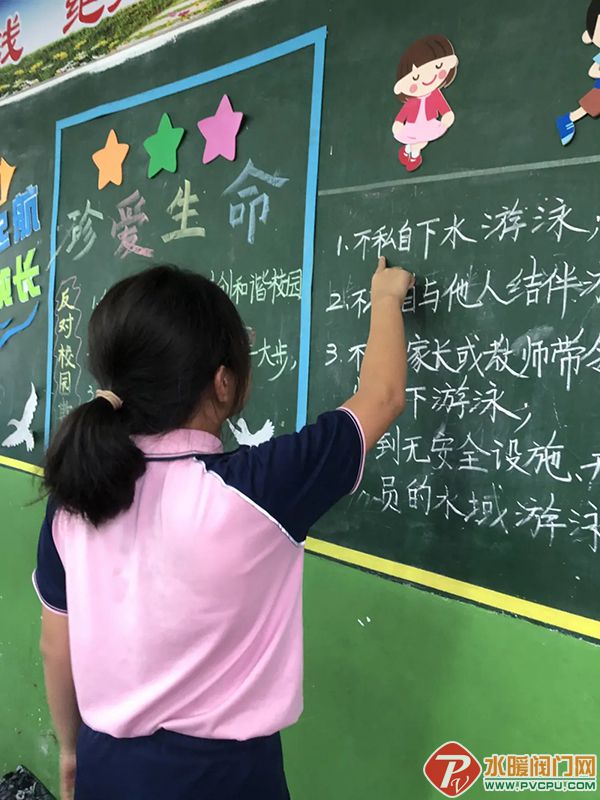 线
航
成长
珍爱生命
反对校园
创和谐校园
一大步,
1.不私自下水游泳;
2.不 自与他人结伴
3.不 家长或教师带
下游泳;
到无安全设施、无
员的水域游泳
水暖阀门网
WWW.PVCPU.COM